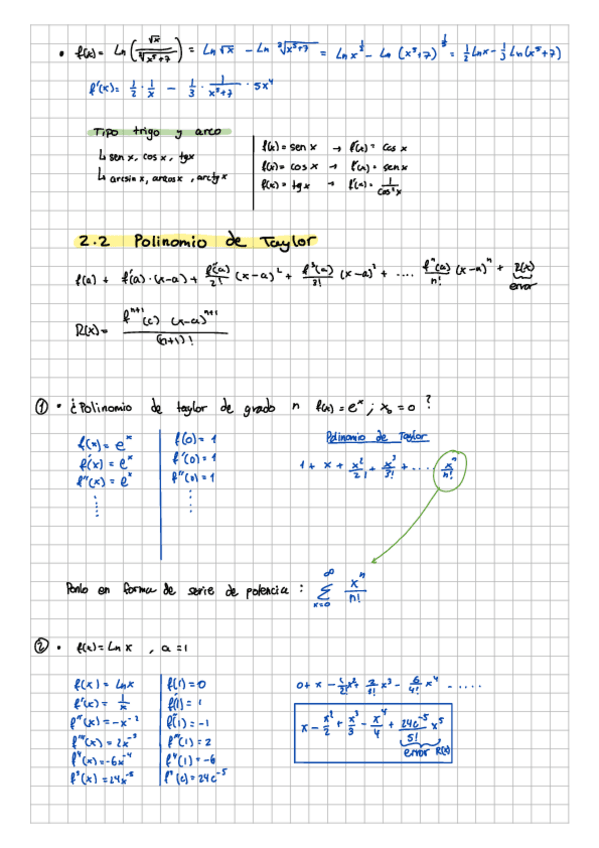 • f(x) = Ln (√x / ³√(x⁵+7)) = Ln √x − Ln ³√(x⁵+7) = Ln x^(1/2) − Ln (x⁵+7)^(1/3) = 1/2 Ln x − 1/3 Ln (x⁵+7)
f'(x) = 1/2 · 1/x − 1/3 · 1/(x⁵+7) · 5x⁴
Tipo trigo y arco
↳ sen x, cos x, tgx
↳ arcsin x, arcos x, arctg x
f(x) = sen x → f'(x) = cos x
f(x) = cos x → f'(x) = sen x
f(x) = tg x → f'(x) = 1/cos² x
2.2 Polinomio de Taylor
f(a) + f'(a)·(x−a) + f''(a)/2! (x−a)² + f³(a)/3! (x−a)³ + .... fⁿ(a)/n! (x−a)ⁿ + R(x)
error
R(x) = fⁿ⁺¹(c) (x−a)ⁿ⁺¹ / (n+1)!
① • ¿Polinomio de taylor de grado n f(x) = eˣ ; x₀ = 0 ?
f(x) = eˣ
f'(x) = eˣ
f''(x) = eˣ
⋮
f(0) = 1
f'(0) = 1
f''(0) = 1
⋮
Polinomio de Taylor
1 + x + x²/2! + x³/3! + .... xⁿ/n!
Ponlo en forma de serie de potencia : ∞ Σ x=0 xⁿ/n!
② • f(x) = Ln x , a = 1
f(x) = Lnx
f'(x) = 1/x
f''(x) = −x⁻²
f'''(x) = 2x⁻³
f⁴(x) = −6x⁻⁴
f⁵(x) = 24x⁻⁵
f(1) = 0
f'(1) = 1
f''(1) = −1
f'''(1) = 2
f⁴(1) = −6
f⁵(c) = 24c⁻⁵
0 + x − 1/2! x² + 2/3! x³ − 6/4! x⁴ − .....
x − x²/2 + x³/3 − x⁴/4 + 24c⁻⁵/5! x⁵
error R(x)